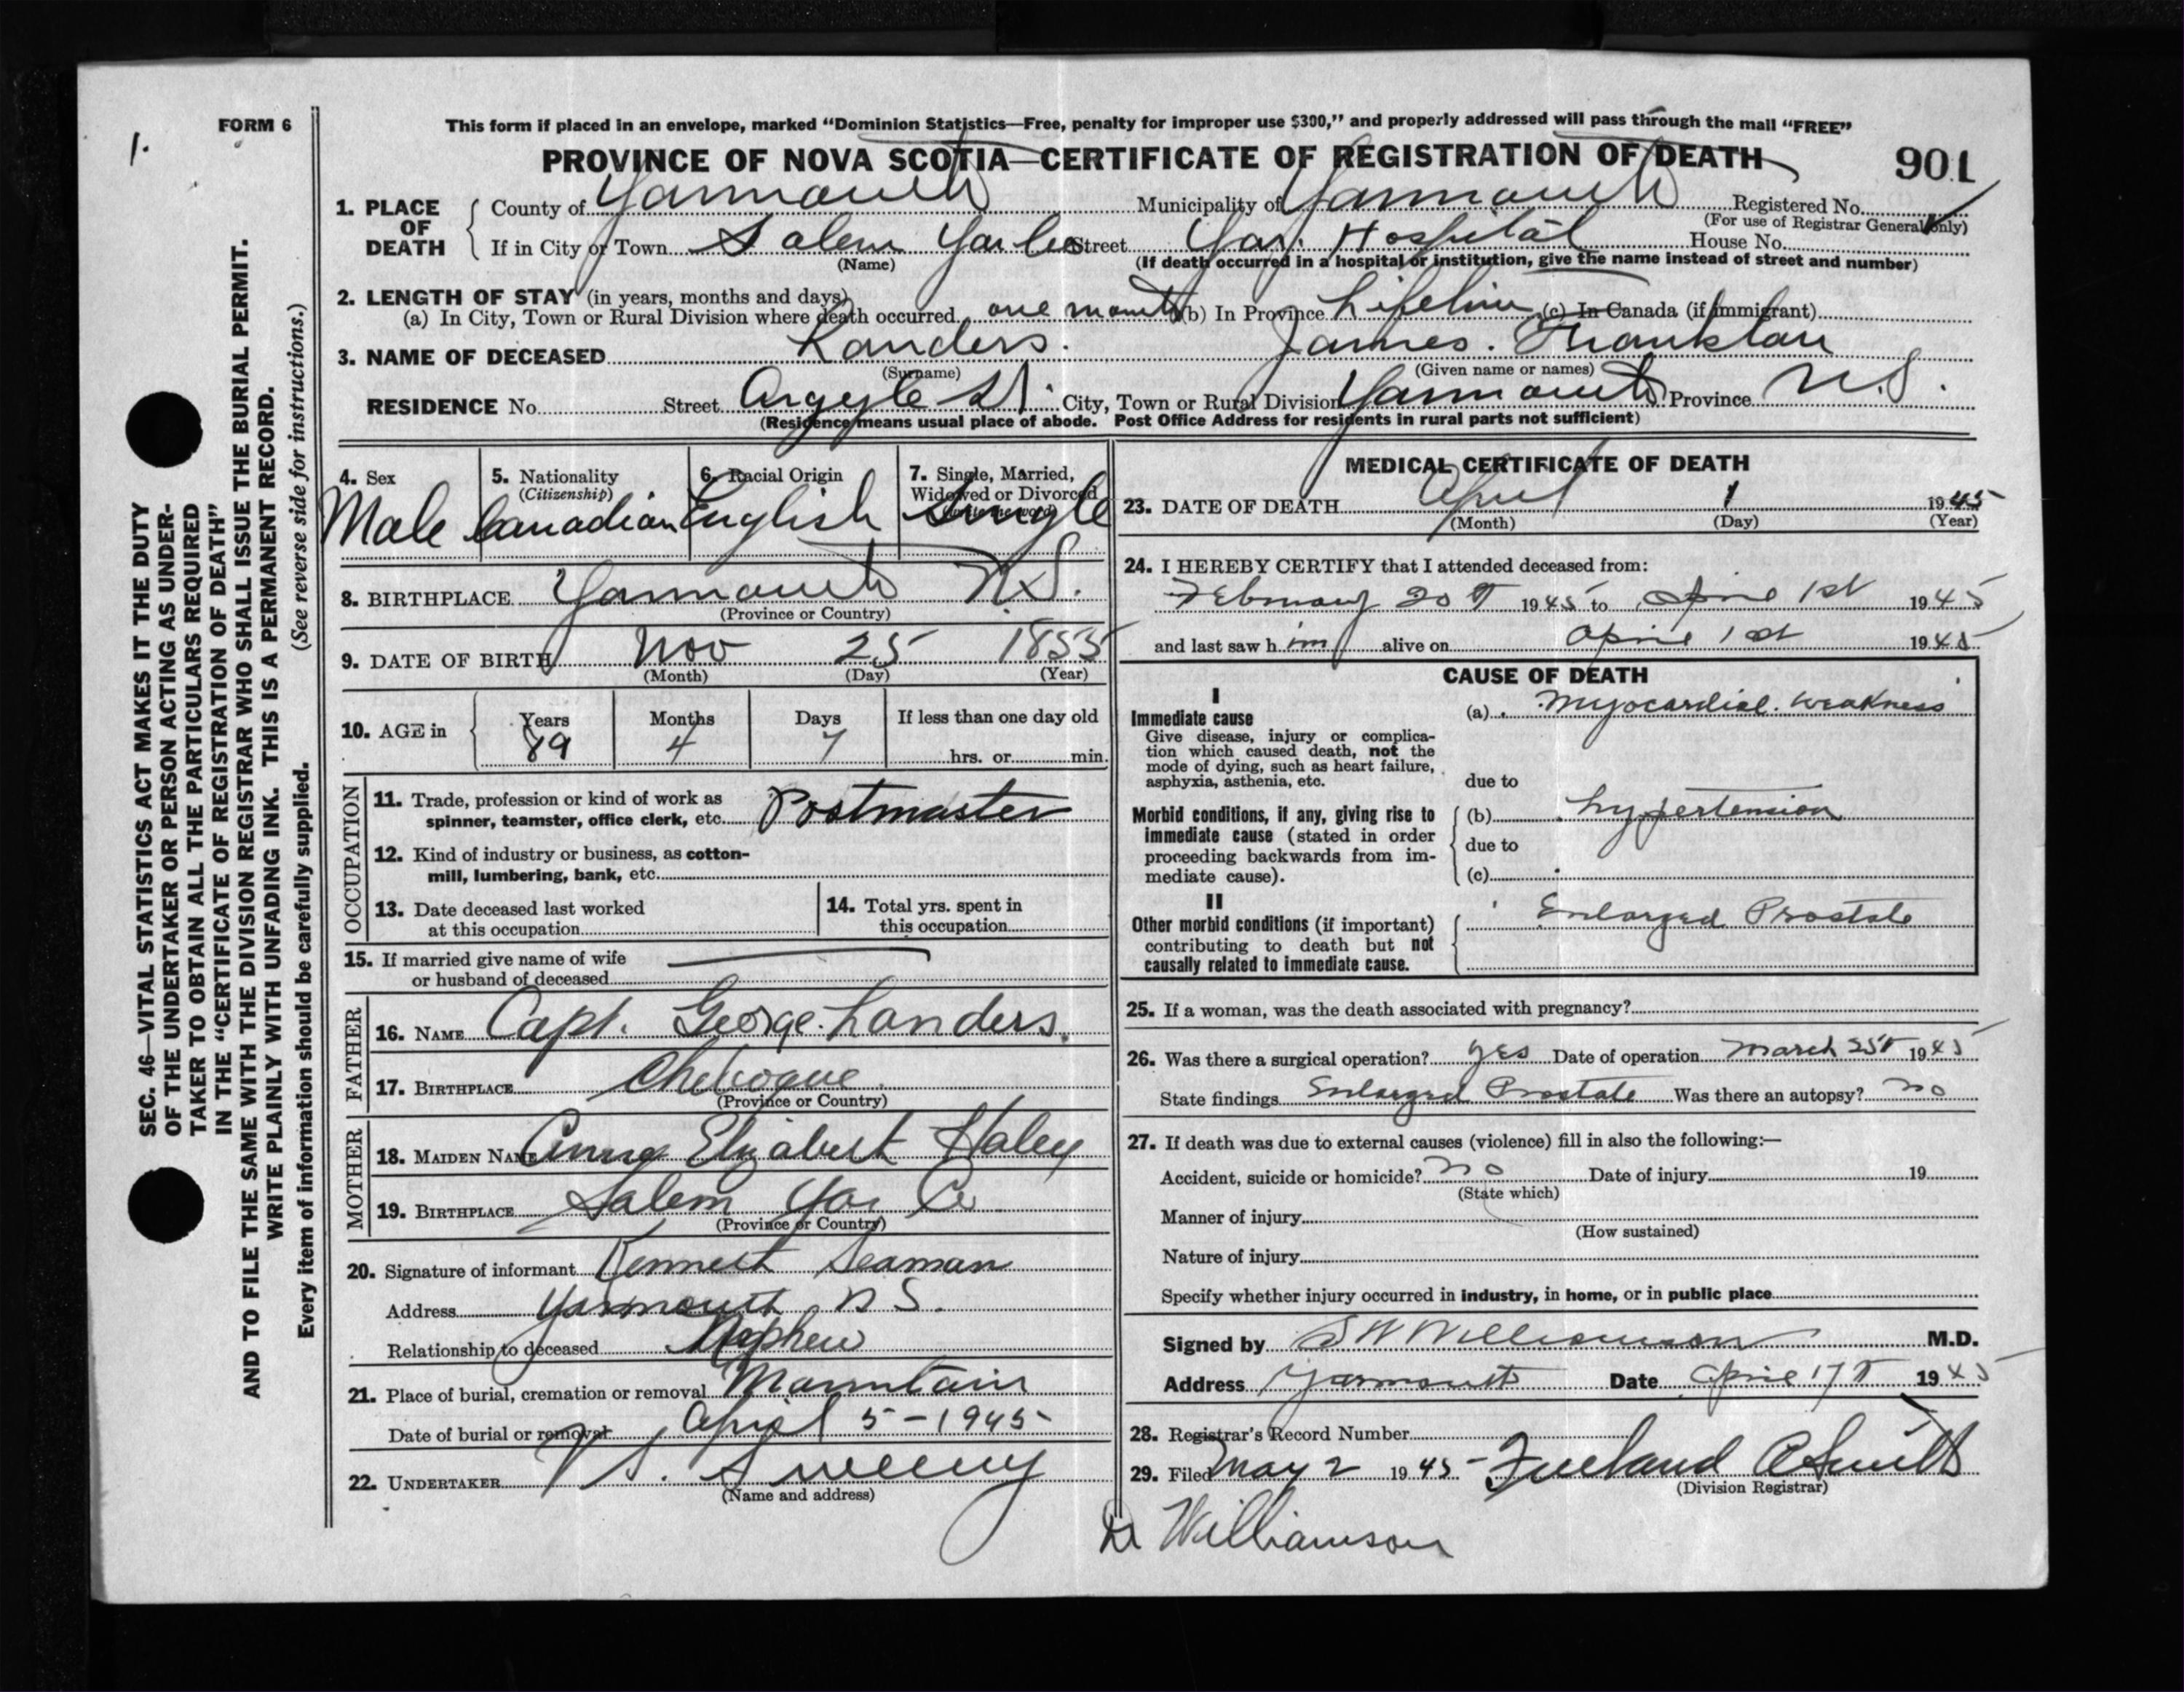 FORM 6
1.
This form if placed in an envelope, marked “Dominion Statistics—Free, penalty for improper use $300,” and properly addressed will pass through the mail “FREE”
PROVINCE OF NOVA SCOTIA—CERTIFICATE OF REGISTRATION OF DEATH
901
1. PLACE OF DEATH
County of Yarmouth Municipality of Yarmouth Registered No.
(For use of Registrar General only)
If in City or Town Salem Yar Co Street Yar. Hospital House No.
(Name) (If death occurred in a hospital or institution, give the name instead of street and number)
2. LENGTH OF STAY (in years, months and days)
(a) In City, Town or Rural Division where death occurred one month (b) In Province Lifetime (c) In Canada (if immigrant)
3. NAME OF DECEASED Landers. James. Franklin
(Surname) (Given name or names)
RESIDENCE No. Street Argyle St. City, Town or Rural Division Yarmouth Province N.S.
(Residence means usual place of abode. Post Office Address for residents in rural parts not sufficient)
4. Sex
Male
5. Nationality
(Citizenship)
Canadian
6. Racial Origin
English
7. Single, Married,
Widowed or Divorced
Single
8. BIRTHPLACE Yarmouth N.S.
(Province or Country)
9. DATE OF BIRTH Nov 25 1855
(Month) (Day) (Year)
10. AGE in
Years Months Days If less than one day old
89 4 7 hrs. or min.
OCCUPATION
11. Trade, profession or kind of work as
spinner, teamster, office clerk, etc. Postmaster
12. Kind of industry or business, as cotton-
mill, lumbering, bank, etc.
13. Date deceased last worked
at this occupation
14. Total yrs. spent in
this occupation
15. If married give name of wife
or husband of deceased
FATHER
16. NAME Capt. George Landers.
17. BIRTHPLACE Chebogue
(Province or Country)
MOTHER
18. MAIDEN NAME Anna Elizabeth Haley
19. BIRTHPLACE Salem Yar Co
(Province or Country)
20. Signature of informant Kenneth Seaman
Address Yarmouth N S.
Relationship to deceased Nephew
21. Place of burial, cremation or removal Mountain
Date of burial or removal April 5-1945
22. UNDERTAKER V S. Sweeny
(Name and address)
MEDICAL CERTIFICATE OF DEATH
23. DATE OF DEATH April 1 1945
(Month) (Day) (Year)
24. I HEREBY CERTIFY that I attended deceased from:
February 20th 1945 to April 1st 1945
and last saw him alive on April 1st 1945
CAUSE OF DEATH
I
Immediate cause
Give disease, injury or complica-
tion which caused death, not the
mode of dying, such as heart failure,
asphyxia, asthenia, etc.
(a) Myocardial weakness
due to
Morbid conditions, if any, giving rise to
immediate cause (stated in order
proceeding backwards from im-
mediate cause).
(b) hypertension
due to
(c)
II
Other morbid conditions (if important)
contributing to death but not
causally related to immediate cause.
Enlarged Prostate
25. If a woman, was the death associated with pregnancy?
26. Was there a surgical operation? yes Date of operation March 25th 1945
State findings Enlarged Prostate Was there an autopsy? no
27. If death was due to external causes (violence) fill in also the following:—
Accident, suicide or homicide? no Date of injury 19
(State which)
Manner of injury
(How sustained)
Nature of injury
Specify whether injury occurred in industry, in home, or in public place
Signed by S W Williamson M.D.
Address Yarmouth Date April 17th 1945
28. Registrar's Record Number
29. Filed May 2 1945 Freeland A Smith
(Division Registrar)
Dr Williamson
SEC. 46—VITAL STATISTICS ACT MAKES IT THE DUTY
OF THE UNDERTAKER OR PERSON ACTING AS UNDER-
TAKER TO OBTAIN ALL THE PARTICULARS REQUIRED
IN THE “CERTIFICATE OF REGISTRATION OF DEATH”
AND TO FILE THE SAME WITH THE DIVISION REGISTRAR WHO SHALL ISSUE THE BURIAL PERMIT.
WRITE PLAINLY WITH UNFADING INK. THIS IS A PERMANENT RECORD.
Every item of information should be carefully supplied. (See reverse side for instructions.)